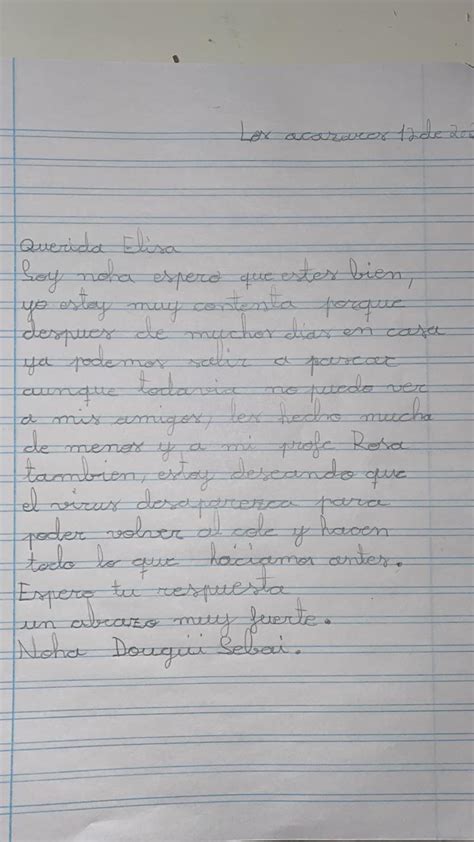 Los acazares 12 de 202
Querida Elisa
Soy noha espero que estes bien,
yo estoy muy contenta porque
despues de muchos dias en casa
ya podemos salir a pasear
aunque todavia no puedo ver
a mis amigos, les hecho mucha
de menos y a mi profe Rosa
tambien, estoy deseando que
el virus desaparezca para
poder volver al cole y hacen
todo lo que haciamos antes.
Espero tu respuesta
un abrazo muy fuerte.
Noha Douguii Sebai.